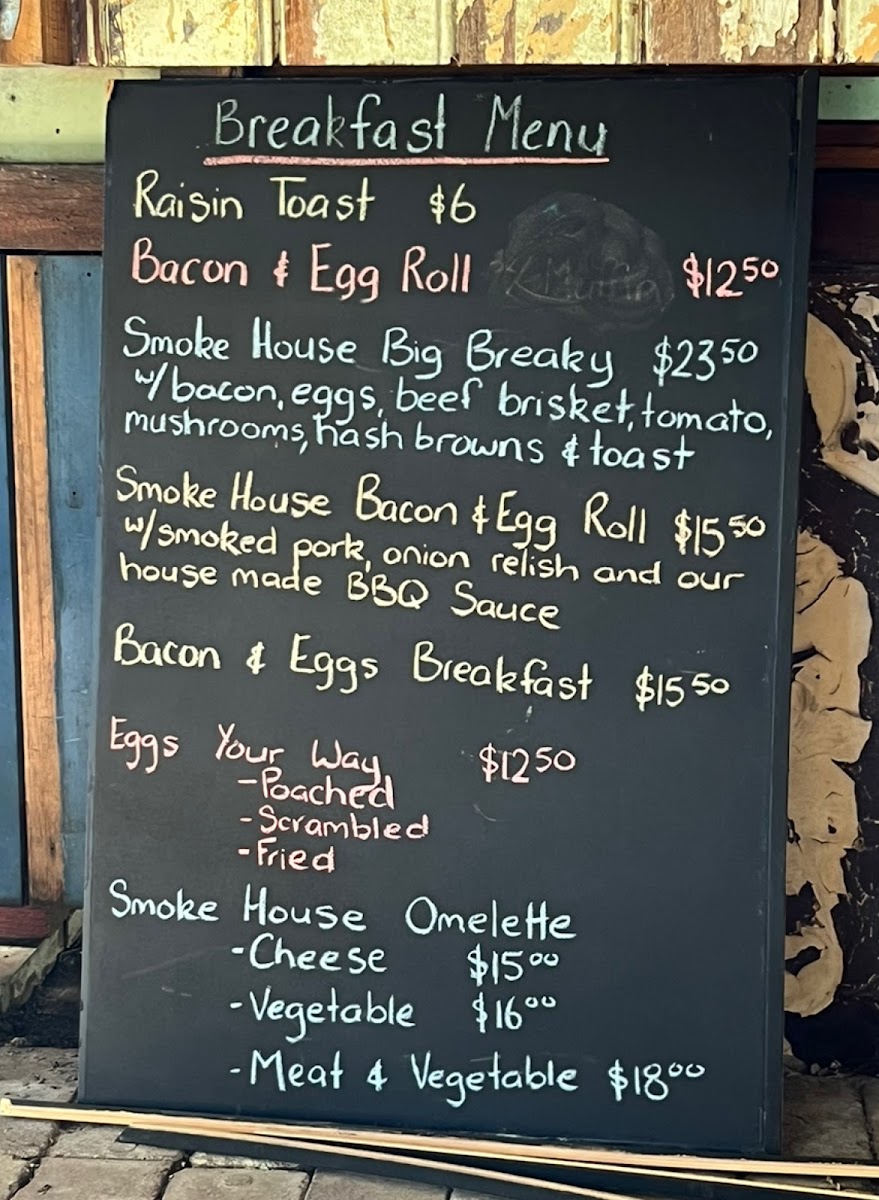 Breakfast Menu
Raisin Toast $6
Bacon & Egg Roll $12 50
Smoke House Big Breaky $23 50
w/bacon, eggs, beef brisket, tomato,
mushrooms, hash browns & toast
Smoke House Bacon & Egg Roll $15 50
w/smoked pork, onion relish and our
house made BBQ Sauce
Bacon & Eggs Breakfast $15 50
Eggs Your Way $12 50
-Poached
-Scrambled
-Fried
Smoke House Omelette
-Cheese $15 00
-Vegetable $16 00
-Meat & Vegetable $18 00